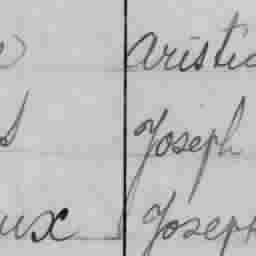 aristid
s Joseph
ux Joseph